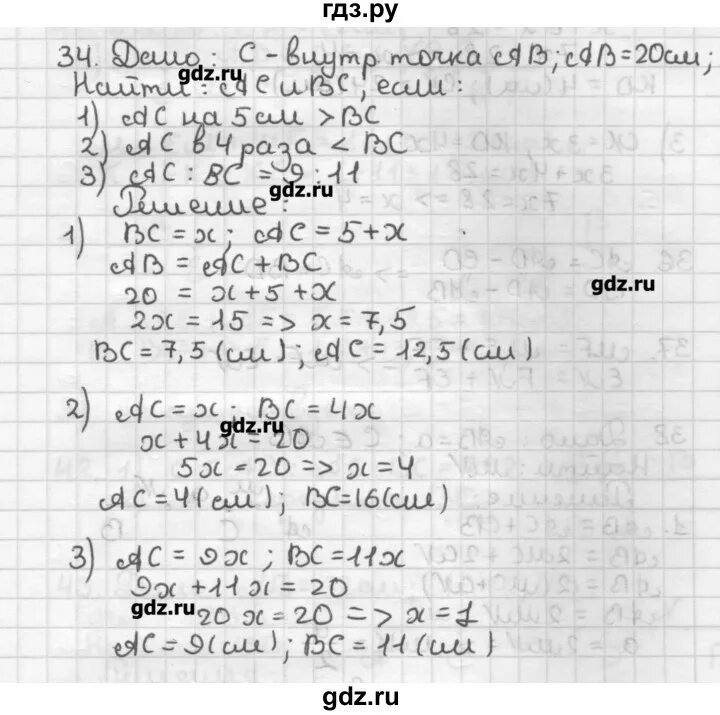 гдз.ру
34. Дано: C - внутр точка AB; AB = 20 см;
gdz.ru
Найти: AC и BC, если:
1) AC на 5 см > BC
2) AC в 4 раза < BC
3) AC : BC = 9 : 11
gdz.ru
Решение:
1) BC = x; AC = 5 + x
AB = AC + BC
gdz.ru
20 = x + 5 + x
2x = 15 => x = 7,5
BC = 7,5 (см); AC = 12,5 (см)
2) AC = x; BC = 4x
gdz.ru
x + 4x = 20
5x = 20 => x = 4
AC = 4 (см); BC = 16 (см)
3) AC = 9x; BC = 11x
9x + 11x = 20
gdz.ru
20x = 20 => x = 1
AC = 9 (см); BC = 11 (см)
gdz.ru